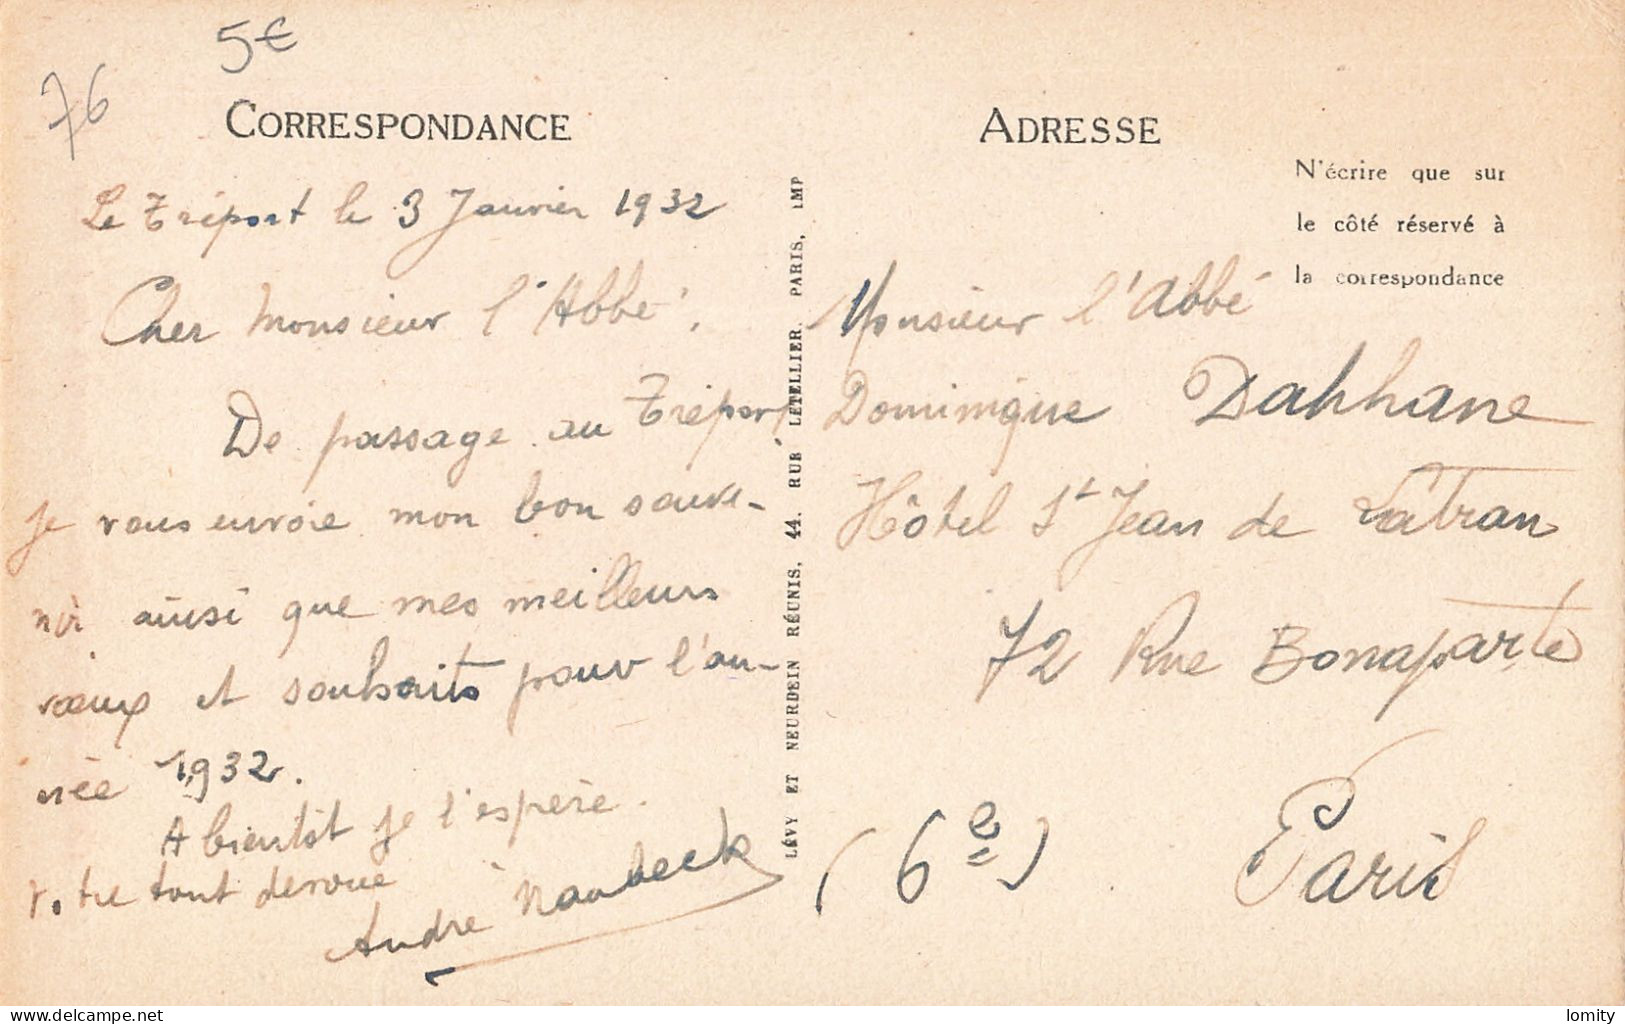 5€
76
CORRESPONDANCE
Le Tréport le 3 Janvier 1932
Cher Monsieur l'Abbé,
De passage au Tréport
je vous envoie mon bon souve-
nir ainsi que mes meilleurs
vœux et souhaits pour l'an-
née 1932.
A bientôt je l'espère.
Votre tout dévoué
André
LÉVY ET NEURDEIN RÉUNIS, 44. RUE LETELLIER. PARIS, IMP
ADRESSE
N'écrire que sur
le côté réservé à
la correspondance
Monsieur l'Abbé
Dominique Dahhane
Hôtel St Jean de Latran
72 Rue Bonaparte
(6e) Paris
www.delcampe.net
lomity